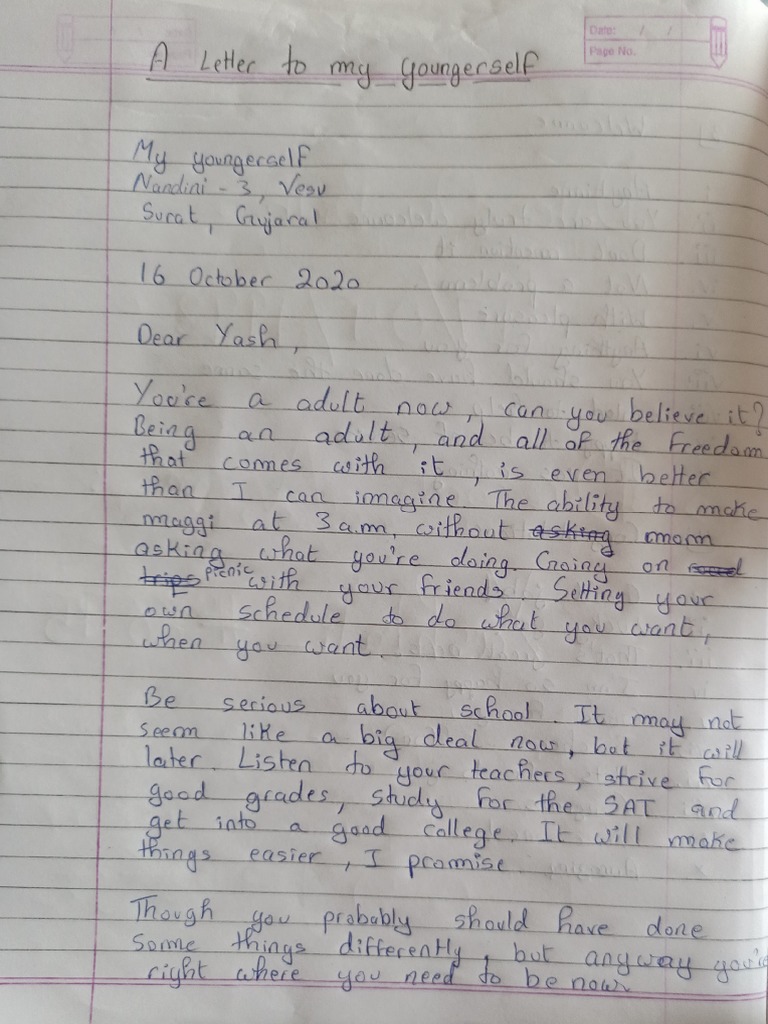 Date: / /
Page No.
A Letter to my youngerself
My youngerself
Nandini - 3, Vesu
Surat, Gujarat
16 October 2020
Dear Yash,
You're a adult now, can you believe it?
Being an adult, and all of the freedom
that comes with it, is even better
than I can imagine. The ability to make
maggi at 3 am, without asking mom
asking what you're doing. Going on
trips picnic with your friends. Setting your
own schedule to do what you want,
when you want.
Be serious about school. It may not
seem like a big deal now, but it will
later. Listen to your teachers, strive for
good grades, study for the SAT and
get into a good college. It will make
things easier, I promise.
Though you probably should have done
some things differently, but anyway you're
right where you need to be now.